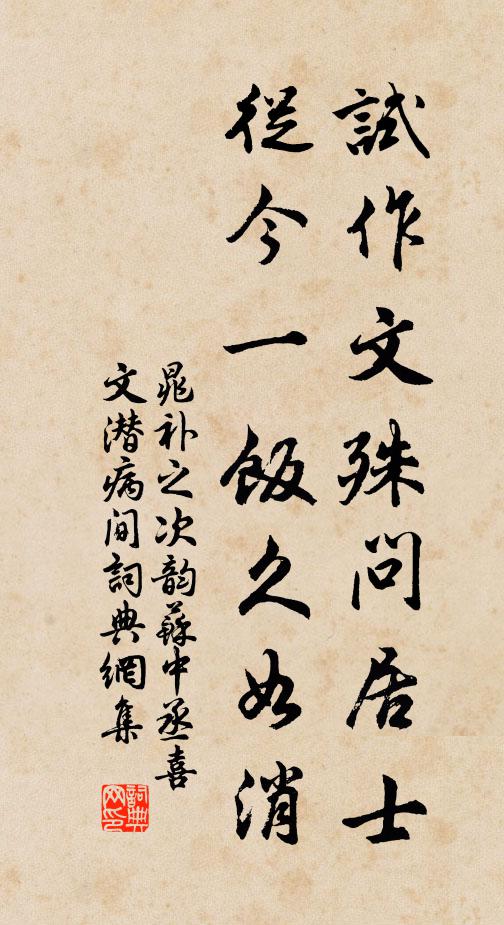 試作文殊問居士
從今一飯久如消
晁补之次韵蘇中丞喜
文潜病間詞典網集
詞典网印